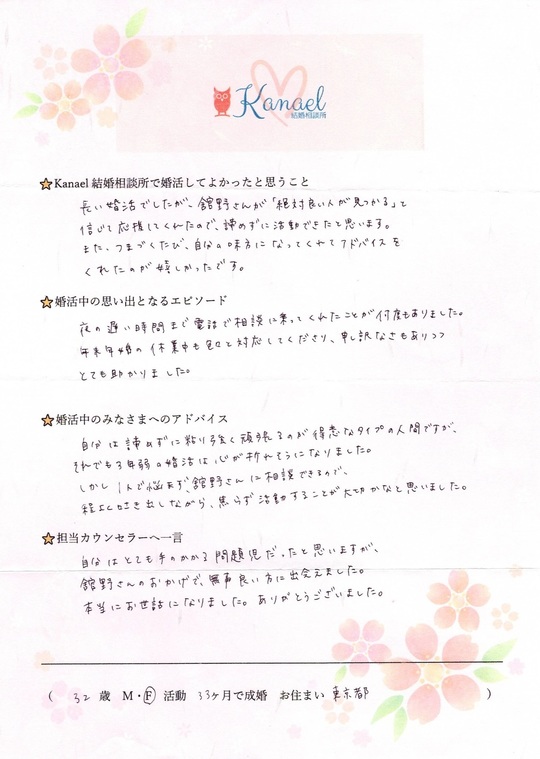 Kanael
結婚相談所
Kanael 結婚相談所で婚活してよかったと思うこと
長い婚活でしたが、舘野さんが「絶対良い人が見つかる」と
信じて応援してくれたので、諦めずに活動できたと思います。
また、つまづくたび、自分の味方になってくれてアドバイスを
くれたのが嬉しかったです。
婚活中の思い出となるエピソード
夜の遅い時間まで電話で相談に乗ってくれたことが何度もありました。
年末年始の休業中も色々と対応してくださり、申し訳なさもありつつ
とても助かりました。
婚活中のみなさまへのアドバイス
自分は諦めずに粘り強く頑張るのが得意なタイプの人間ですが、
それでも3年弱の婚活は心が折れそうになりました。
しかし1人で悩まず、舘野さんに相談できるので、
程よく吐き出しながら、焦らず活動することが大切かなと思いました。
担当カウンセラーへ一言
自分はとても手のかかる問題児だったと思いますが、
舘野さんのおかげで、無事良い方に出会えました。
本当にお世話になりました。ありがとうございました。
( 32 歳 M・F 活動 33ヶ月で成婚 お住まい 東京都 )